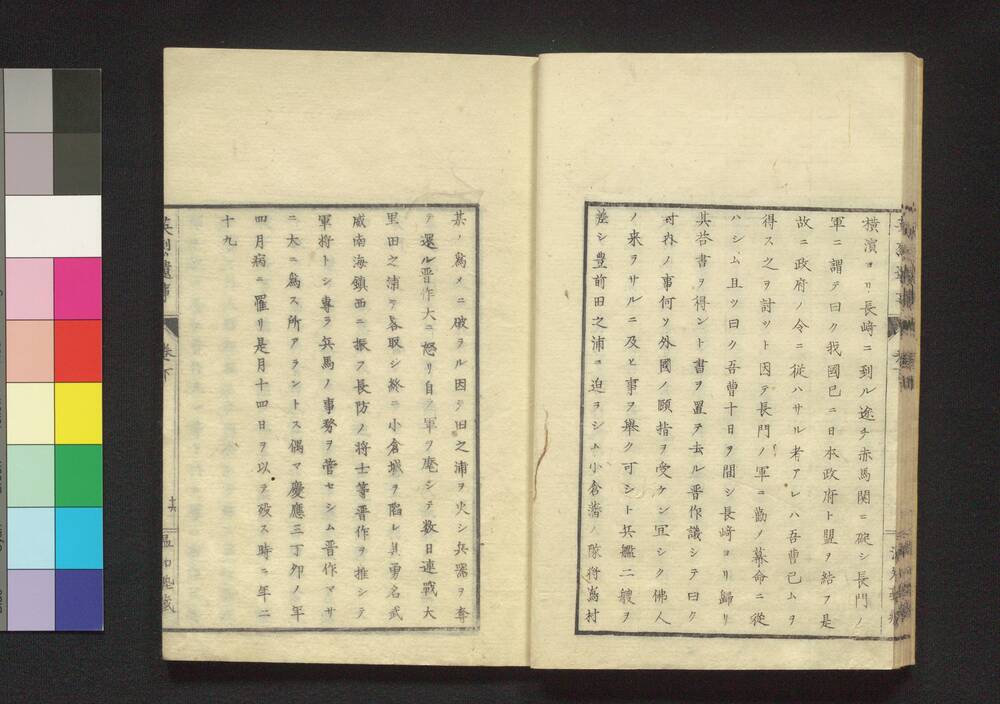 横濱ヨリ長崎ニ到ル途チ赤馬関ニ碇シ長門ノ
軍ニ謂テ曰ク我國已ニ日本政府ト盟ヲ結フ是
故ニ政府ノ令ニ従ハサル者アレハ吾曹已ムヲ
得ス之ヲ討ツト因テ長門ノ軍ニ勸メ幕命ニ從
ハシム且ツ曰ク吾曹十日ヲ間シ長崎ヨリ歸リ
其答書ヲ得ント書ヲ置テ去ル晋作議シテ曰ク
對内ノ事何ソ外國ノ頤指ヲ受ケン宜シク佛人
ノ来ラサルニ及ヒ事ヲ擧ク可シト兵艦二艘ヲ
差シ豊前田之浦ニ迫ラシム小倉藩ノ隊将嶌村
某ノ爲メニ破ラル因テ田之浦ヲ火シ兵器ヲ奪
テ還ル晋作大ニ怒リ自ラ軍ヲ麾シテ数日連戰大
里田之浦ヲ畧取シ終ニ小倉城ヲ陥レ其勇名武
威南海鎮西ニ振フ長防ノ将士等晋作ヲ推シテ
軍将トシ專ラ兵馬ノ事務ヲ菅セシム晋作マサ
ニ大ニ爲ス所アラントス偶マ慶應三丁卯ノ年
四月病ニ罹リ是月十四日ヲ以テ歿ス時ニ年二
十九
遺事
卷下
十六